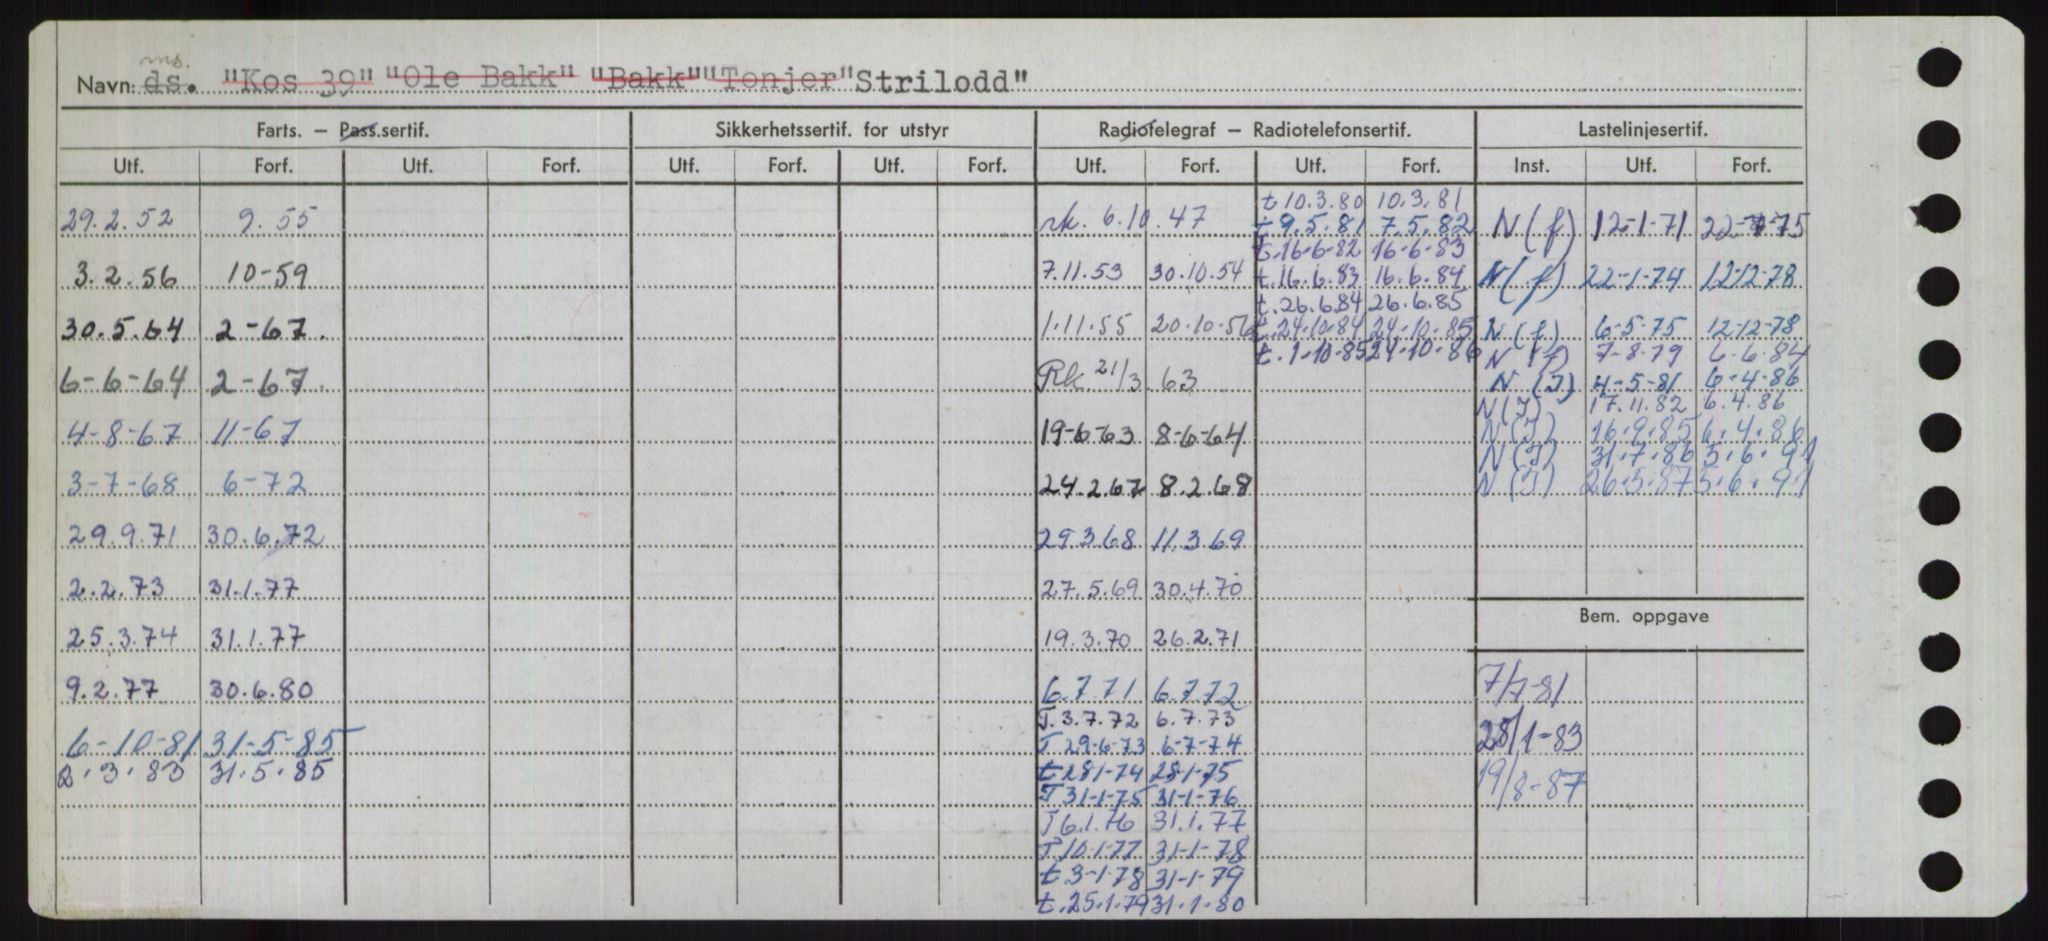 ms.
Navn: ds. "Kos 39" "Ole Bakk" "Bakk" "Tonjer "Strilodd"
Farts. — Pass.sertif. Sikkerhetssertif. for utstyr Radiotelegraf — Radiotelefonsertif. Lastelinjesertif.
Utf. Forf. Utf. Forf. Utf. Forf. Utf. Forf. Utf. Forf. Utf. Forf. Inst. Utf. Forf.
29.2.52 9.55
3.2.56 10-59
30.5.64 2-67.
6-6-64 2-67.
4-8-67 11-67
3-7-68 6-72
29.9.71 30.6.72
2.2.73 31.1.77
25.3.74 31.1.77
9.2.77 30.6.80
6-10-81 31-5-85
2.3.83 31.5.85
rk. 6.10.47
7.11.53 30.10.54
1.11.55 20.10-56
Rk 21/3.63
19-6-63 8-6-64
24.2.67 8.2.68
29.3.68 11.3.69
27.5.69 30.4.70
19.3.70 26.2.71
6.7.71 6.7.72
T.3.7.72 6.7.73
T 29-6-73 6-7-74
t 28-1-74 28-1-75
T 31-1-75 31-1-76
T 6.1.76 31.1.77
T.10.1-77 31-1-78
t 3-1-78 31-1-79
t.25.1.79 31.1.80
t 10.3.80 10.3.81
t 9.5.81 7.5.82
t.16-6-82 16-6-83
t.16.6.83 16.6.84
t.26.6.84 26.6.85
t.24.10.84 24.10.85
t.1-10-85 24-10-86
N(f) 12-1-71 22-75
N(f) 22-1-74 12-12-78
N(f) 6-5-75 12-12-78
N(f) 7-8-79 6-6-84
N(I) 4-5-81 6-4-86
N(I) 17.11.82 6.4.86
N(I) 16.9.85 6.4.86
N(I) 31.7.86 5.6.91
N(I) 26.5.87 5.6.91
Bem. oppgave
7/7-81
28/1-83
19/8-87